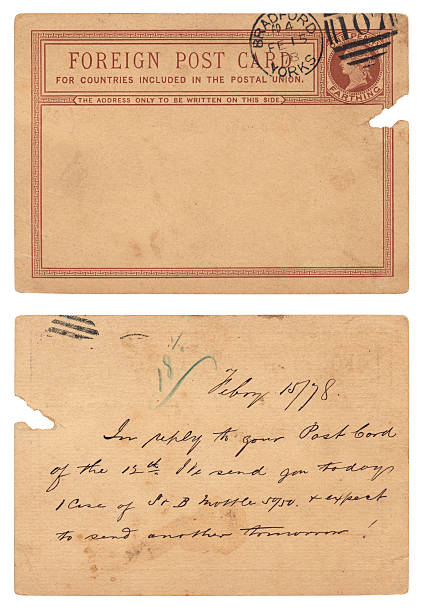 FOREIGN POST CARD
FOR COUNTRIES INCLUDED IN THE POSTAL UNION.
(THE ADDRESS ONLY TO BE WRITTEN ON THIS SIDE)
BRADFORD
YORKS
FE 15
107
FARTHING
18
Febry 15/78.
In reply to your Post Card
of the 12th. We send you today
1 Case of S & B Mottle 50/50. & expect
to send another tomorrow!